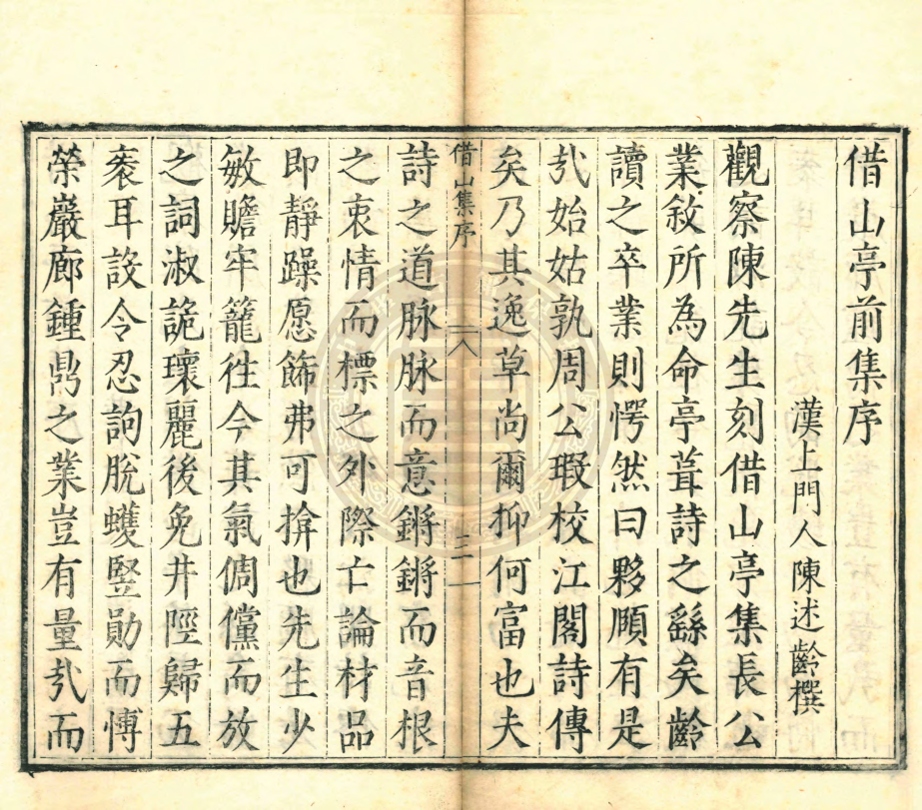 借山亭前集序
漢上門人陳述齡撰
觀察陳先生刻借山亭集長公
業敘所為命亭葺詩之繇矣齡
讀之卒業則愕然曰夥頤有是
㢤始姑孰周公瑕校江閣詩傳
矣乃其逸草尚爾抑何富也夫
借山集序
一
詩之道脉脉而意鏘鏘而音根
之衷情而標之外際亡論材品
即靜躁愿飾弗可揜也先生少
敏贍牢籠徃今其氣倜儻而放
之詞淑詭瓌麗後免井陘歸五
袠耳設令忍訽脫蠖竪勛而愽
榮巖廊鍾鼎之業豈有量㢤而